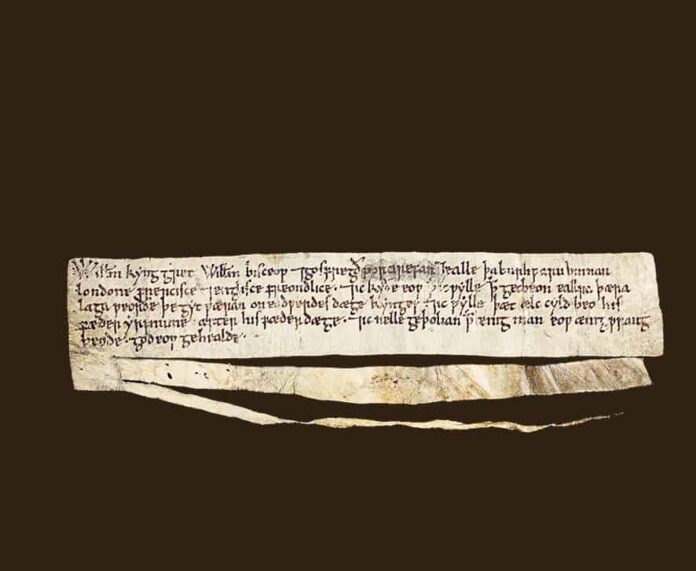 Willm kyng gret Willm bisceop ⁊ gosfregð portirefan ⁊ ealle þa burhƿaru binnan
londone frencisce ⁊ englisce freondlice · ⁊ ic kyðe eoƿ ꝥ ic ƿylle ꝥ get beon eallra þæra
laga ƿeorðe þe gyt ƿæran on eadƿerdes dæge kynges · ⁊ ic ƿylle þæt ælc cyld beo his
fæder yrfnume · æfter his fæder dæge · ⁊ ic nelle geþolian ꝥ ænig man eoƿ ænig ƿrang
beode · god eoƿ gehealde ·